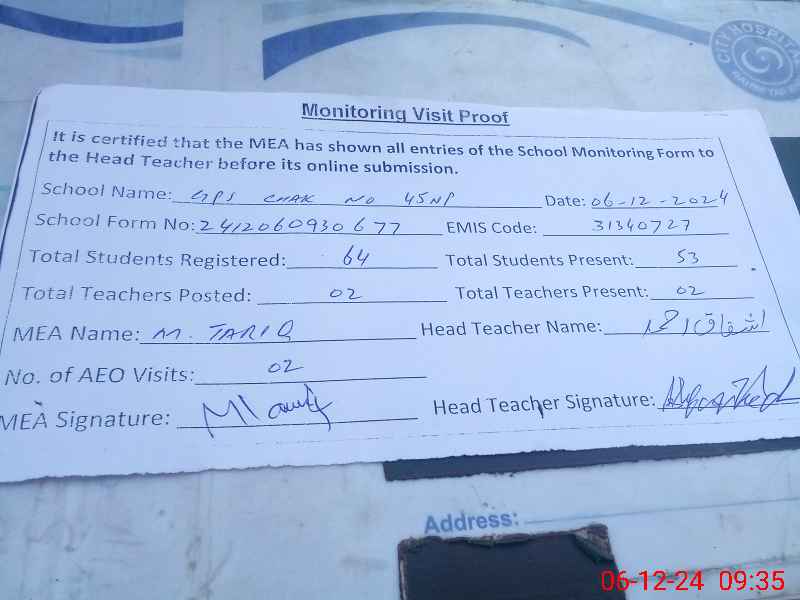 CITY HOSPITAL
Monitoring Visit Proof
It is certified that the MEA has shown all entries of the School Monitoring Form to
the Head Teacher before its online submission.
School Name: GPS CHAK NO 45NP Date: 06-12-2024
School Form No: 2412060930677 EMIS Code: 31340727
Total Students Registered: 64 Total Students Present: 53
Total Teachers Posted: 02 Total Teachers Present: 02
MEA Name: M. TARIQ Head Teacher Name: اشفاق احمد
No. of AEO Visits: 02
MEA Signature: Head Teacher Signature:
Address:
06-12-24 09:35